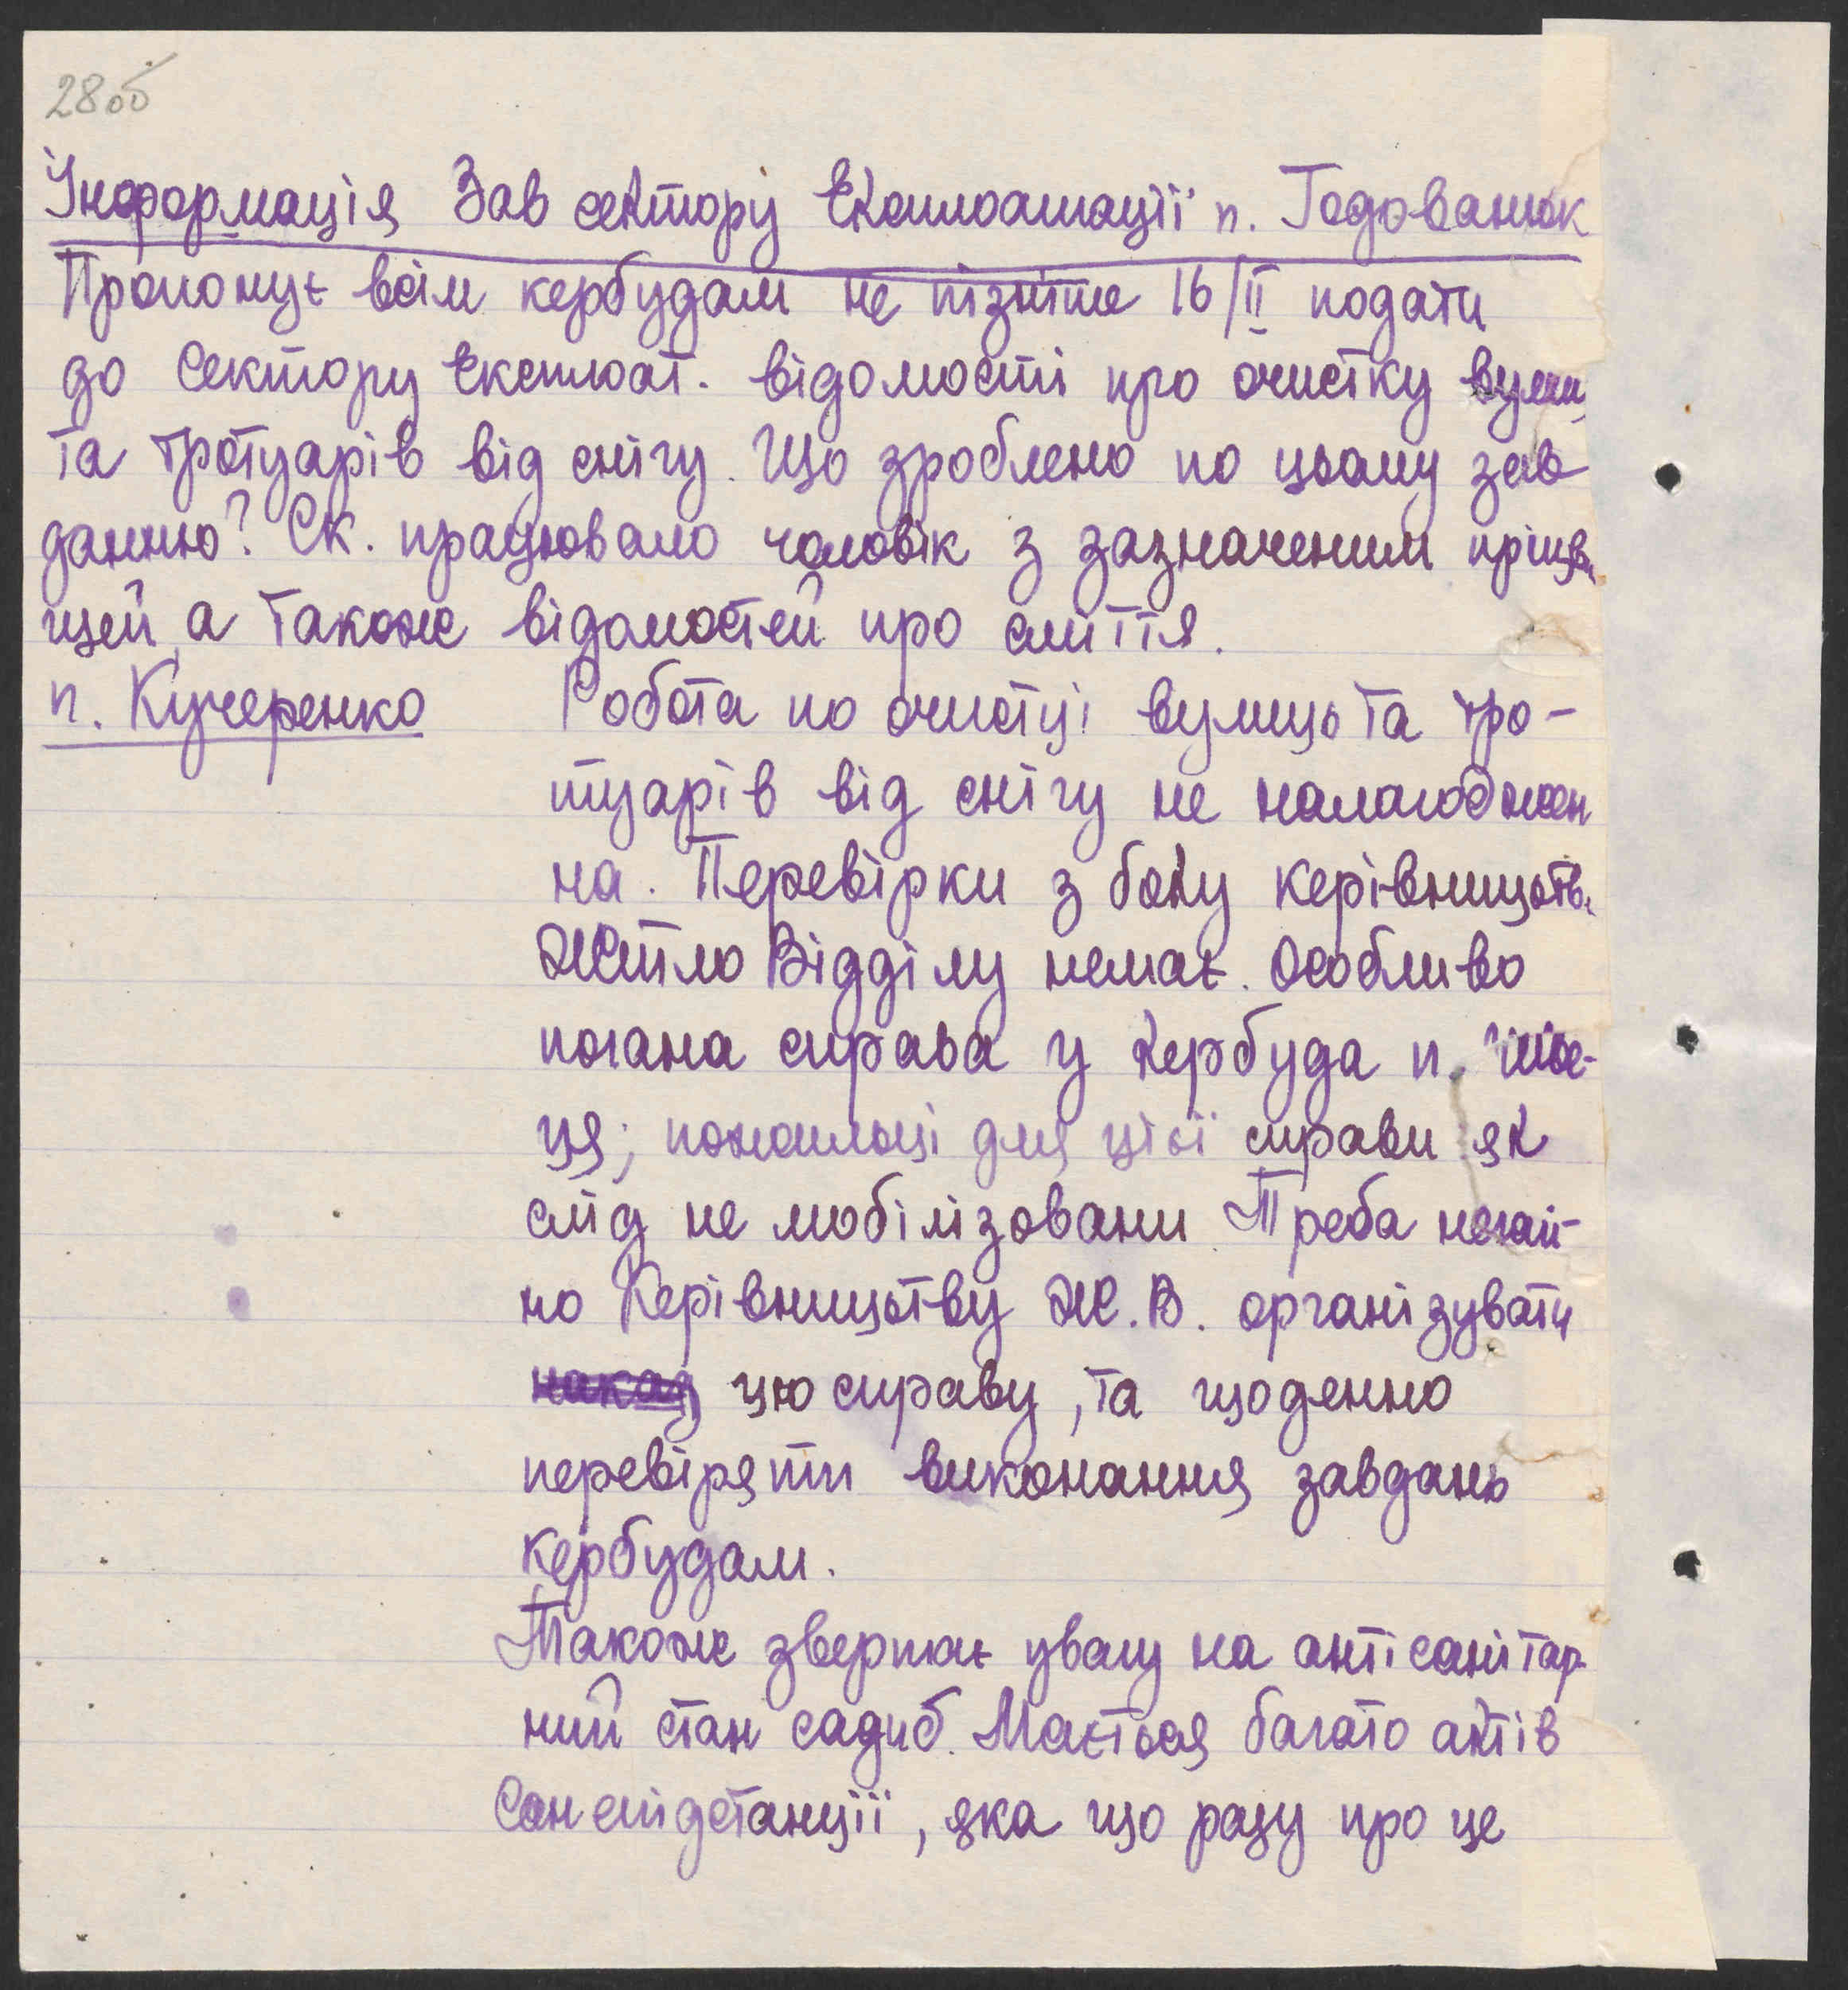 28об
Інформація Зав сектору Експлоатації п. Годованюк
Пропонує всім кербудам не пізніше 16/II подати
до Сектору Експлоат. відомості про очистку вулиц
та тротуарів від снігу. Що зроблено по цьому зав
данню? Ск. працювало чоловік з зазначеним прізв
щей, а також відомостей про сміття.
п. Кучеренко Робота по очистці вулиць та тро-
туарів від снігу не налагоджен
на. Перевірки з боку керівництв
Житло Відділу немає. Особливо
погана справа у Кербуда п.
ця; пожильці для цієї справи як
слід не мобілізовани. Треба негай-
но Керівництву Ж.В. організувати
цю справу, та щоденно
перевіряти виконання завдань
кербудам.
Також звертає увагу на антісанітар-
ний стан садиб. Мається багато актів
Санепідстанції, яка що разу про це